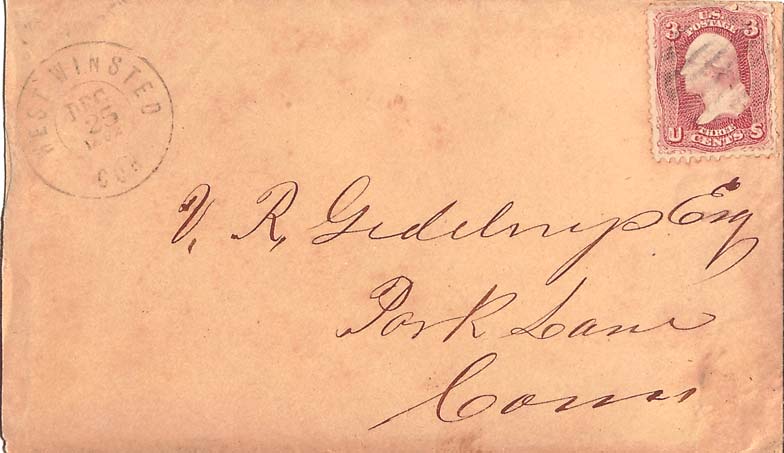 WEST WINSTED
DEC
25
CON
3 U.S. 3
POSTAGE
U THREE S
CENTS
V. R. Esq
Park Lane
Conn